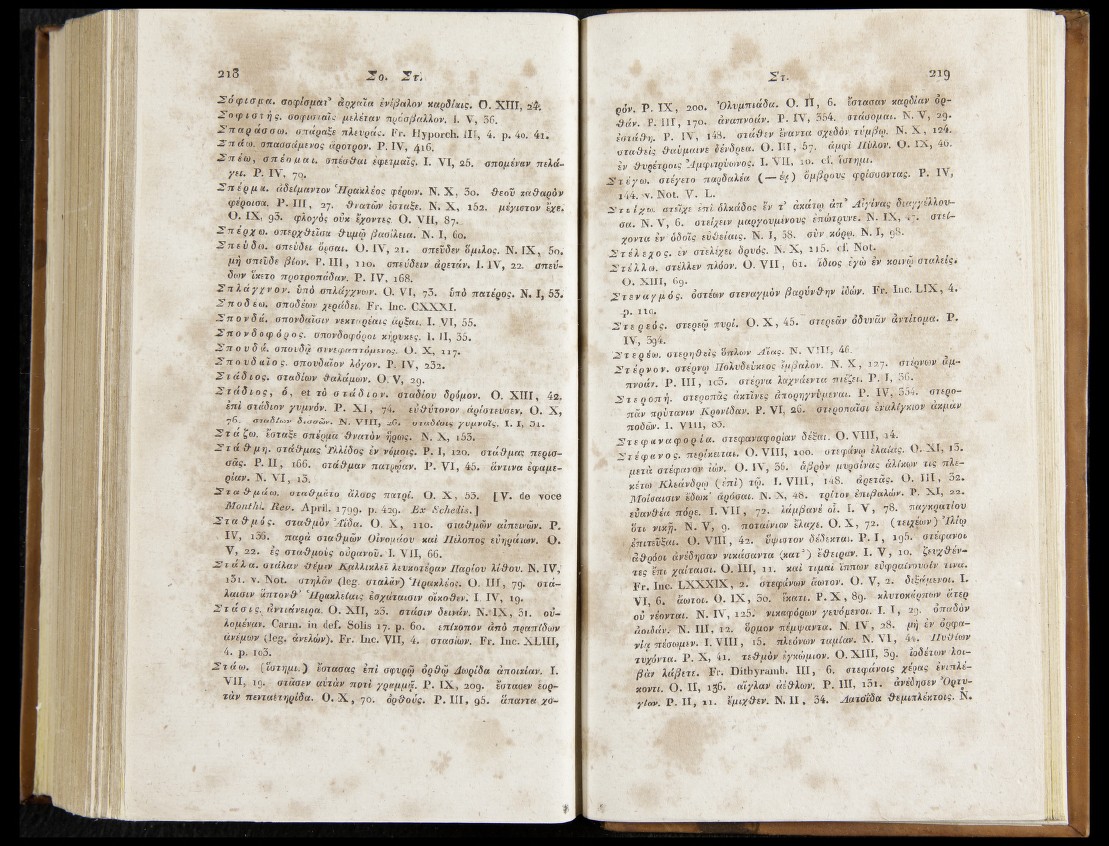 218 Σο. Στ.
Σόφισμα. σοφίσματ' ἀρχαῖα ἐνίβαλον καρδίαις. O. XIII, 24.
Σοφιστής. σοφισταῖς μελέταν πρόσβαλλον. I. V, 36.
Σπαράσσω. σπάραξε πλευράς. Fr. Hyporch. III, 4. p. 40. 41.
Σπάω. σπασσάμενος ἄροτρον. P. IV, 416.
Σπέω, σπέομαι. σπέσθαι ἐφετμαῖς. I. VI, 25. σπομέναν πελά-
γει. P. IV, 79.
Σπέρμα. ἀδείμαντον Ἡρακλέος φέρων. N. X, 30. θεοῦ καθαρὸν
φέροισα. P. III, 27. θνατῶν ἔσταξε. N. X, 152. μέγιστον ἔχε.
O. IX, 93. φλογὸς οὐκ ἔχοντες O. VII, 87.
Σπέρχω. σπερχθεῖσα θυμῷ βασίλεια. N. I, 60.
Σπεύδω. σπεύδει ὄρσαι. O. IV, 21. σπεῦδεν ὅμιλος. N. IX, 50.
μὴ σπεῦδε βίον. P. III, 110. σπεύδειν ἀρετάν. I. IV, 22. σπεύ-
δων ἵκετο προτροπάδαν. P. IV, 168.
Σπλάγχνον. ὑπὸ σπλάγχνων. O. VI, 73. ὑπὸ πατέρος. N. I, 53.
Σποδέω. σποδέων χεράδει. Fr. Inc. CXXXI.
Σπονδά. σπονδαῖσιν νεκταρέαις ἄρξαι. I. VI, 55.
Σπονδοφόρος. σπονδοφόροι κήρυκες. I. II, 35.
Σπουδά. σπουδᾷ συνεφαπτόμενος. O. X, 117.
Σπουδαῖος. σπουδαῖον λόγον. P. IV, 232.
Στάδιος. σταδίων θαλάμων. O. V, 29.
Στάδιος, ὁ, et τὸ στάδιον. σταδίου δρόμον. O. XIII, 42.
ἐπὶ στάδιον γυμνόν. P. XI, 74. εὐθύτονον ἀρίστευσεν. O. X,
76. σταδίων δισσῶν. N. VIII, 26. σταδίοις γυμνοῖς. I. I, 31.
Στάζω. ἔσταξε σπέρμα θνατὸν ἥρως. N. X, 153.
Στάθμη. στάθμας Ὑλλίδος ἐν νόμοις. P. I, 120. στάθμας περισ-
σᾶς. P. II, 166. στάθμαν πατρῴαν. P. VI, 45. ἅντινα ἐφαμε-
ρίαν. N. VI, 13.
Σταθμάω. σταθμᾶτο ἄλσος πατρί. O. X, 53. [V. de voce
Monthl. Rev. April. 1799. p. 429. Ex Schedis.]
Σταθμός. σταθμὸν Ἀΐδα. O. X, 110. σταθμῶν αἰπεινῶν. P.
IV, 136. παρὰ σταθμῶν Οἰνομάου καὶ Πέλοπος εὐηράτων. O.
V, 22. ἐς σταθμοὺς οὐρανοῦ. I. VII, 66.
Στάλα. στάλαν θέμιν Καλλικλεῖ λευκοτέραν Παρίου λίθου. N. IV,
131. v. Not. στηλᾶν (leg. σταλᾶν) Ἡρακλέος. O. III, 79. στά-
λαισιν ἅπτονθ' Ἡρακλείαις ἐσχάταισιν οἴκοθεν. I. IV, 19.
Στάσις. ἀντιάνειρα. O. XII, 23. στάσιν δεινάν. N. IX, 31. οὐ-
λομέναν. Carm. in def. Solis 17. p. 60. ἐπίκοπον ἀπὸ πραπίδων
ἀνέμων (leg. ἀνελών). Fr. Inc. VII, 4. στασίων. Fr. Inc. XLIII,
4. p. 103.
Στάω. (ἵστημι.) ἔστασας ἐπὶ σφυρῷ ὀρθῷ Δωρίδα ἀποικίαν. I.
VII, 19. στᾶσεν αὐτὰν ποτὶ γραμμᾷ. P. IX, 209. ἔστασεν ἑορ-
τὰν πενταετηρίδα. O. X, 70. ὀρθούς. P. III, 95. ἅπαντα χο-
Στ. 219
ρόν. P. IX, 200. Ὀλυμπιάδα. O. II, 6. ἔστασαν καρδίαν ὀρ-
θάν. P. III, 170. ἀναπνοάν. P. IV, 354. στάσομαι. N. V, 29.
ἐστάθη. P. IV, 148. στάθεν ἔναντα σχεδὸν τύμβῳ. N. X, 124.
σταθεὶς θαύμαινε δένδρεα. O. III, 57. ἀμφὶ Πύλον. O. IX, 46.
ἐν θυρέτροις Ἀμφιτρύωνος. I. VII, 10. cf. ἵστημι.
Στέγω. στέγετο παρδαλέα (—έῃ) ὄμβρους φρίσσοντας. P. IV,
144. v. Not. V. L.
Στείχω. στεῖχε ἐπὶ ὁλκάδος ἔν τ' ἀκάτῳ ἀπ' Αἰγίνας διαγγέλλοι-
σα. N. V, 6. στείχειν μαργουμένους ἐπώτρυνε. N. IX, 47. στεί-
χοντα ἐν ὁδοῖς εὐθείαις. N. I, 38. σὺν κόρῳ. N. I, 98.
Στέλεχος. ἐν στελέχει δρυός. N. X, 115. cf. Not.
Στέλλω. στέλλεν πλόον. O. VII, 61. ἴδιος ἐγὼ ἐν κοινῷ σταλείς.
O. XIII, 69.
Στεναγμός. ὀστέων στεναγμὸν βαρύνθην ἰδών. Fr. Inc. LIX, 4.
p. 110.
Στερεός. στερεῷ πυρί. O. X, 45. στερεᾶν ὀδυνᾶν ἀντίτομα. P.
IV, 394.
Στερέω. στερηθεὶς ὅπλων Αἴας. N. VIII, 46.
Στέρνον. στέρνῳ Πολυδεύκεος ἔμβαλον. N. X, 127. στέρνων ἀμ-
πνοάν. P. III, 103. στέρνα λαχνάεντα πιέζει. P. I, 36.
Στεροπή. στεροπᾶς ἀκτῖνες ἀπορηγνύμεναι. P. IV, 354. στερο-
πᾶν πρύτανιν Κρονίδαν. P. VI, 26. στεροπαῖσι ἐναλίγκιον ἀκμὰν
ποδῶν. I. VIII, 83.
Στεφαναφορία. στεφαναφορίαν δέξαι. O. VIII, 14.
Στέφανος. περίκειται. O. VIII, 100. στεφάνῳ ἐλαίας. O. XI, 13.
μετὰ στέφανον ἰών. O. IV, 36. ἁβρὸν μυρσίνας ἁλίκων τις πλε-
κέτω Κλεάνδρῳ (ἐπὶ) τῷ. I. VIII, 148. ἀρετᾶς. O. III, 32.
Μοίσαισιν ἔδωκ' ἀρόσαι. N. X, 48. τρίτον ἐπιβαλών. P. XI, 22.
εὐανθέα πόρε. I. VII, 72. λάμβανέ οἱ. I. V, 78. παγκρατίου
ὅτι νικῇ. N. V, 9. ποταίνιον ἔλαχε. O. X, 72. (τειχέων) Ἰλίῳ
ἐπιτεῦξαι. O. VIII, 42. ὕψιστον δέδεκται. P. I, 195. στέφανοι
ἀθρόοι ἀνέδησαν νικάσαντα (κατ') ἔθειραν. I. V, 10. ζευχθέν-
τες ἔπι χαίταισι. O. III, 11. καὶ τιμαὶ ἵππων εὐφραίνουσίν τινα.
Fr. Inc. LXXXIX, 2. στεφάνων ἄωτον. O. V, 2. διξάμενοι. I.
VI, 6. ἄωτοι. O. IX, 30. ἕκατι. P. X, 89. κλυτοκάρπων ἄτερ
οὐ νέονται. N. IV, 125. νικαφόρων γευόμενοι. I. I, 29. ὀπαδὸν
ἀοιδάν. N. III, 12. ὅρμον πέμψαντα. N. IV, 28. μὴ ἐν ὀρφα-
νίᾳ πέσωμεν. I. VIII, 15. πλεόνων ταμίαν. N. VI, 44. Πυθίων
τυχόντα. P. X, 41. τεθμὸν ἐγκώμιον. O. XIII, 39. ἰοδέτων λοι-
βὰν λάβετε. Fr. Dithyramb. III, 6. στεφάνοις χέρας ἐνιπλέ-
κοντι. O. II, 136. αἴγλαν ἀέθλων. P. III, 131. ἀνέδησεν Ὀρτυ-
γίαν. P. II, 11. ἐμιχθεν. N. II, 34. Λατοΐδα θεμιπλέκτοις. N.